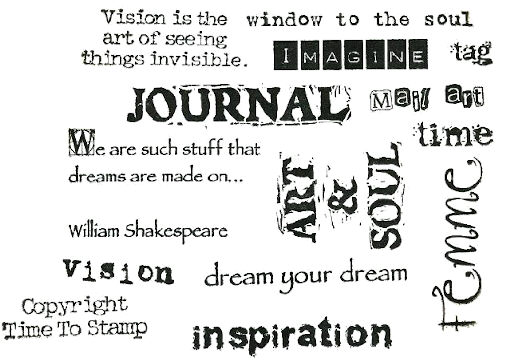 Vision is the
art of seeing
things invisible.
window to the soul
IMAGINE
tag
JOURNAL
Mail art
time
We are such stuff that
dreams are made on...
William Shakespeare
ART
&
SOUL
Femme
Vision
dream your dream
Copyright
Time To Stamp
inspiration